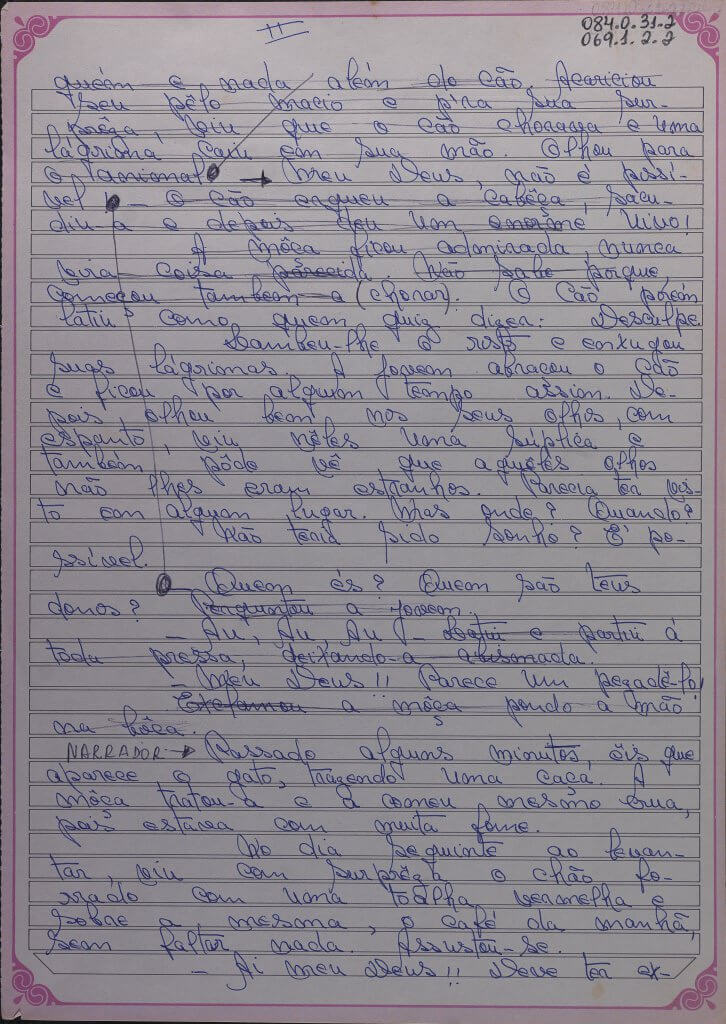 084.0.31.2
069.1.2.2
11
guém e nada além do cão. Acariciou
seu pêlo macio e p'ra sua sur-
prêsa, viu que o cão chorava e uma
lágrima caiu em sua mão. Olhou para
o animal → Meu Deus, não é possí-
vel! - O cão ergueu a cabêça, sacu-
diu-a e depois deu um enorme uivo!
A môça ficou admirada nunca
vira coisa parecida. Não sabe porque,
começou tambem a (chorar). O Cão porém
latiu como quem quiz dizer: Desculpe.
Lambeu-lhe o rosto e enxugou
suas lágrimas. A jovem abraçou o cão
e ficou por algum tempo assim. De-
pois, olhou bem nos seus olhos, com
espanto, viu nêles uma súplica e
também pôde vê que aquêles olhos
não lhes eram estranhos. Parecia ter vis-
to em algum lugar. Mas onde? Quando?
Não teria sido sonho? É po-
ssível.
Quem és? Quem são teus
donos? Perguntou a jovem.
- Au, Au, Au! - latiu e partiu à
toda pressa, deixando-a abismada.
- Meu Deus!! Parece um pezadêlo!
Exclamou a môça pondo a mão
na bôca.
NARRADOR → Passado alguns minutos, eis que
aparece o gato, trazendo uma caça. A
môça tratou-a e a comeu mesmo crua,
pois estava com muita fome.
No dia seguinte ao levan-
tar, viu com surprêza o chão fo-
rrado com uma toalha vermelha e
sobre a mesma, o café da manhã,
sem faltar nada. Assustou-se.
- Ai meu Deus!! Deve ter ex-